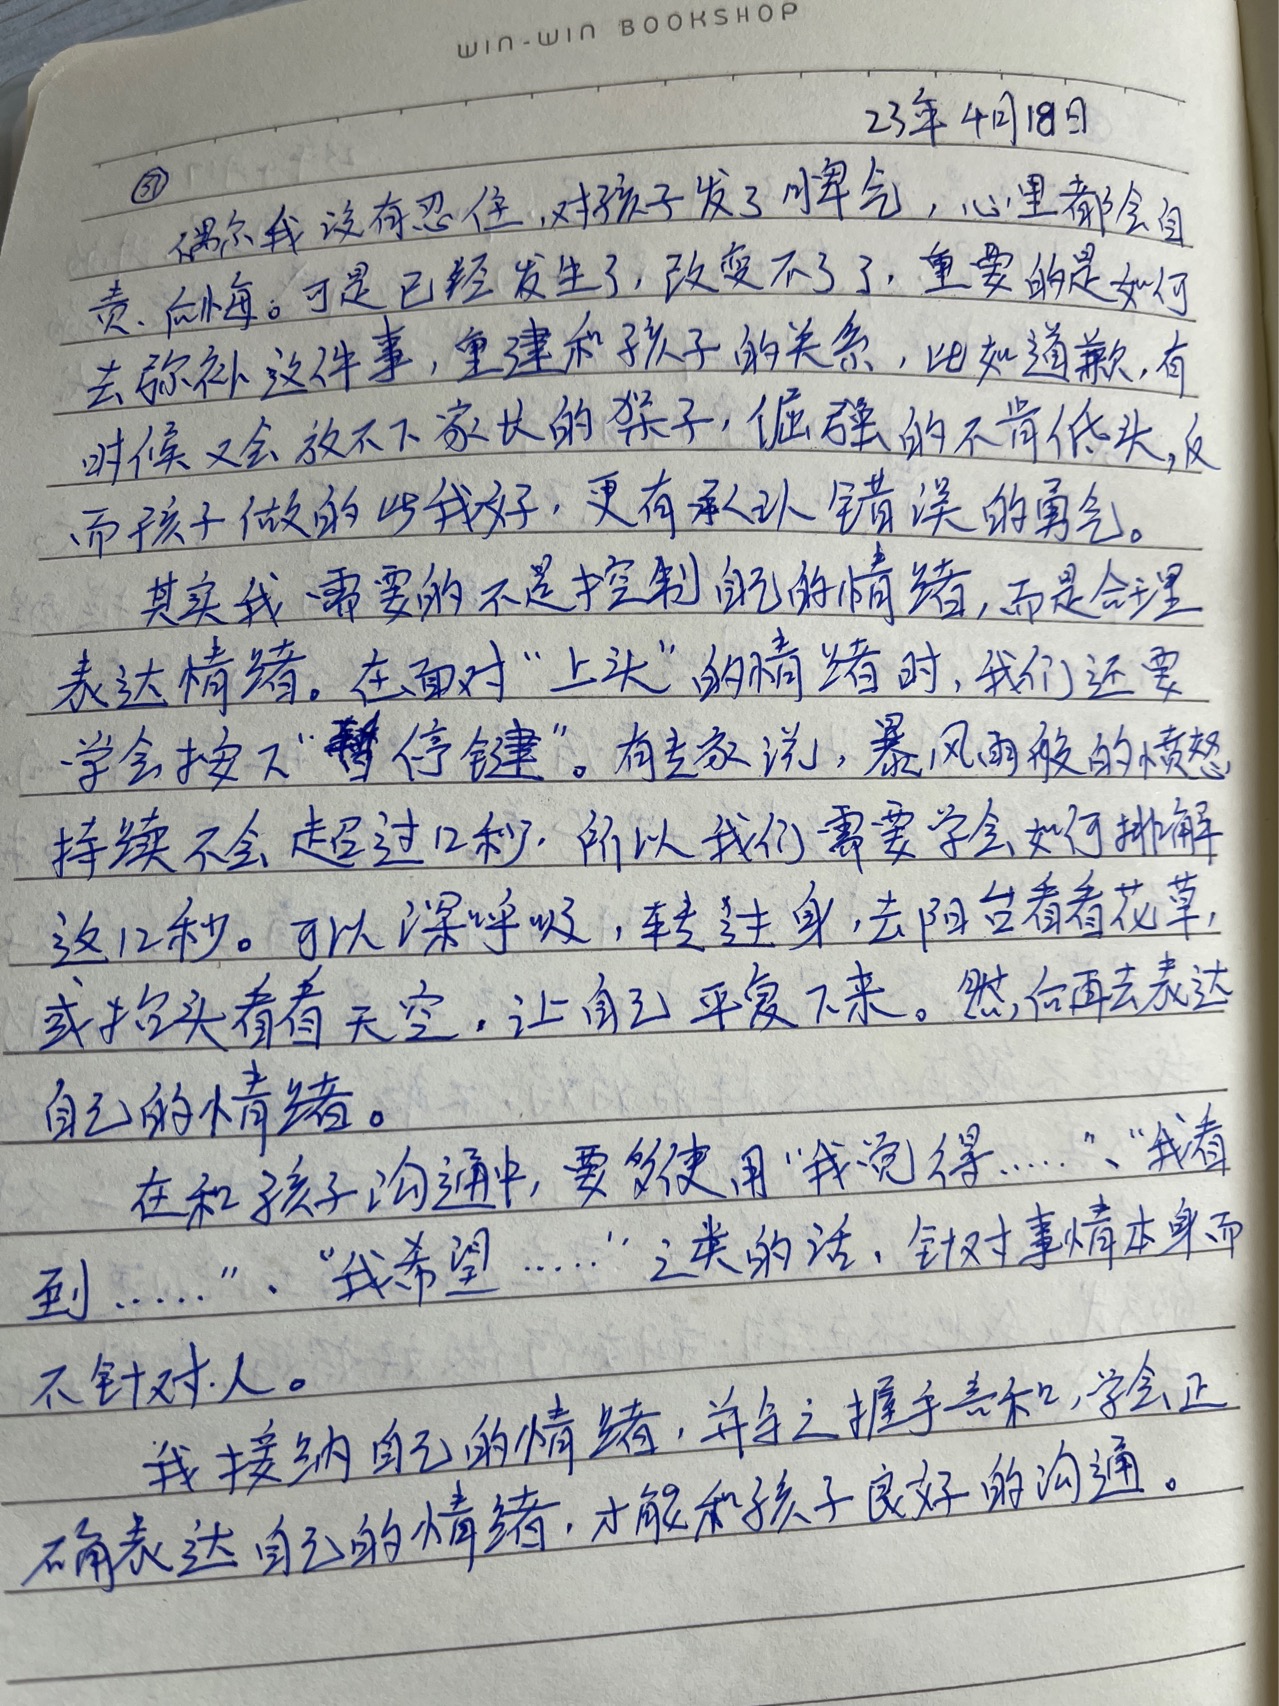 WIN-WIN BOOKSHOP
23年4月18日
㊲
偶尔我没有忍住,对孩子发了脾气,心里都会自
责、后悔。可是已经发生了,改变不了了,重要的是如何
去弥补这件事,重建和孩子的关系,比如道歉,有
时候又会放不下家长的架子,倔强的不肯低头,反
而孩子做的比我好,更有承认错误的勇气。
其实我需要的不是控制自己的情绪,而是合理
表达情绪。在面对“上头”的情绪时,我们还要
学会按下“暂停键”。有专家说,暴风雨般的愤怒
持续不会超过12秒,所以我们需要学会如何排解
这12秒。可以深呼吸,转过身,去阳台看看花草,
或抬头看看天空,让自己平复下来。然后再去表达
自己的情绪。
在和孩子沟通中,要多使用“我觉得……”、“我看
到……”、“我希望……”之类的话,针对事情本身而
不针对人。
我接纳自己的情绪,并与之握手言和,学会正
确表达自己的情绪,才能和孩子良好的沟通。